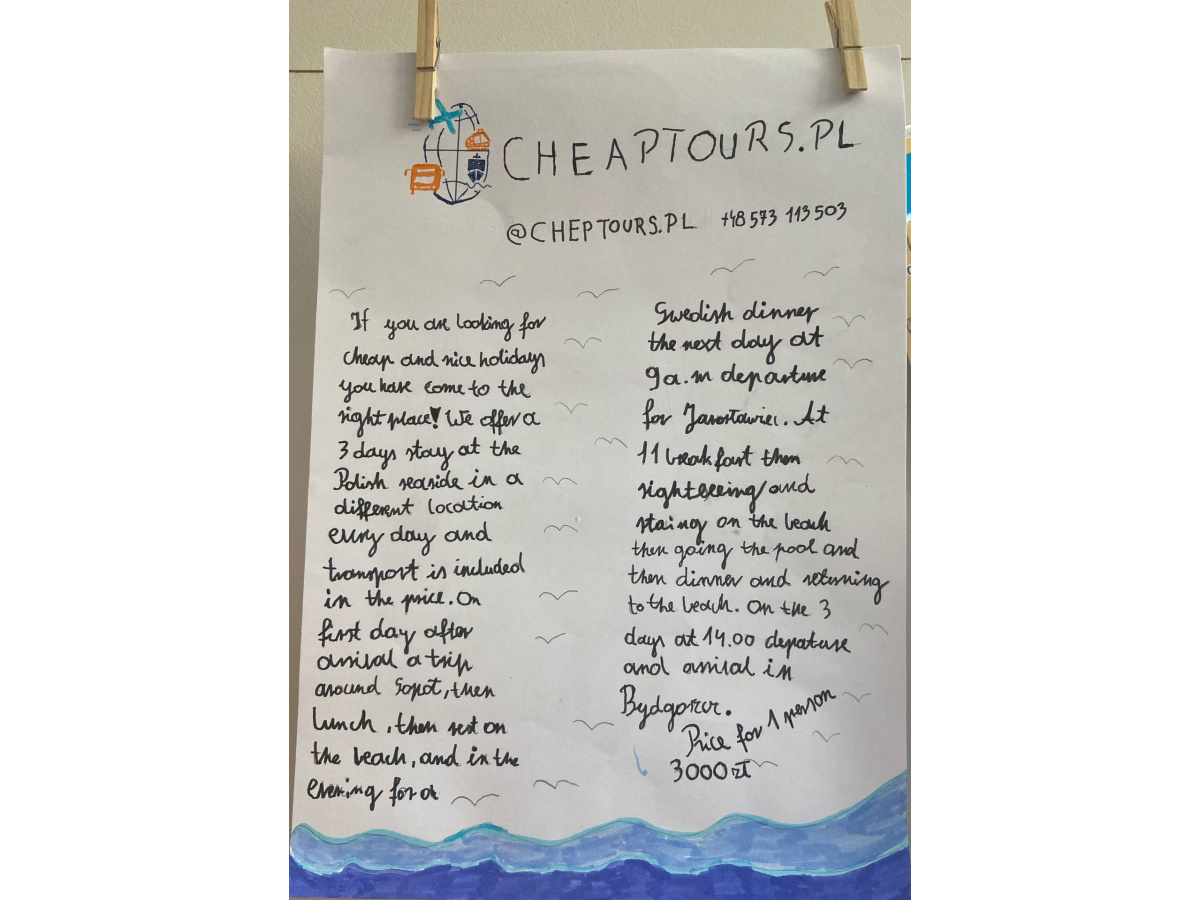 CHEAPTOURS.PL
@CHEPTOURS.PL +48 573 113 503
If you are looking for
cheap and nice holidays
you have come to the
right place! We offer a
3 days stay at the
Polish seaside in a
different location
every day and
transport is included
in the price. On
first day after
arrival a trip
around Sopot, then
lunch, then rest on
the beach, and in the
evening for a
Swedish dinner
the next day at
9 a.m departure
for Jarosławiec. At
11 breakfast then
sightseeing and
staing on the beach
then going the pool and
then dinner and returning
to the beach. On the 3
days at 14.00 depature
and arrival in
Price for 1 person
3000 zł